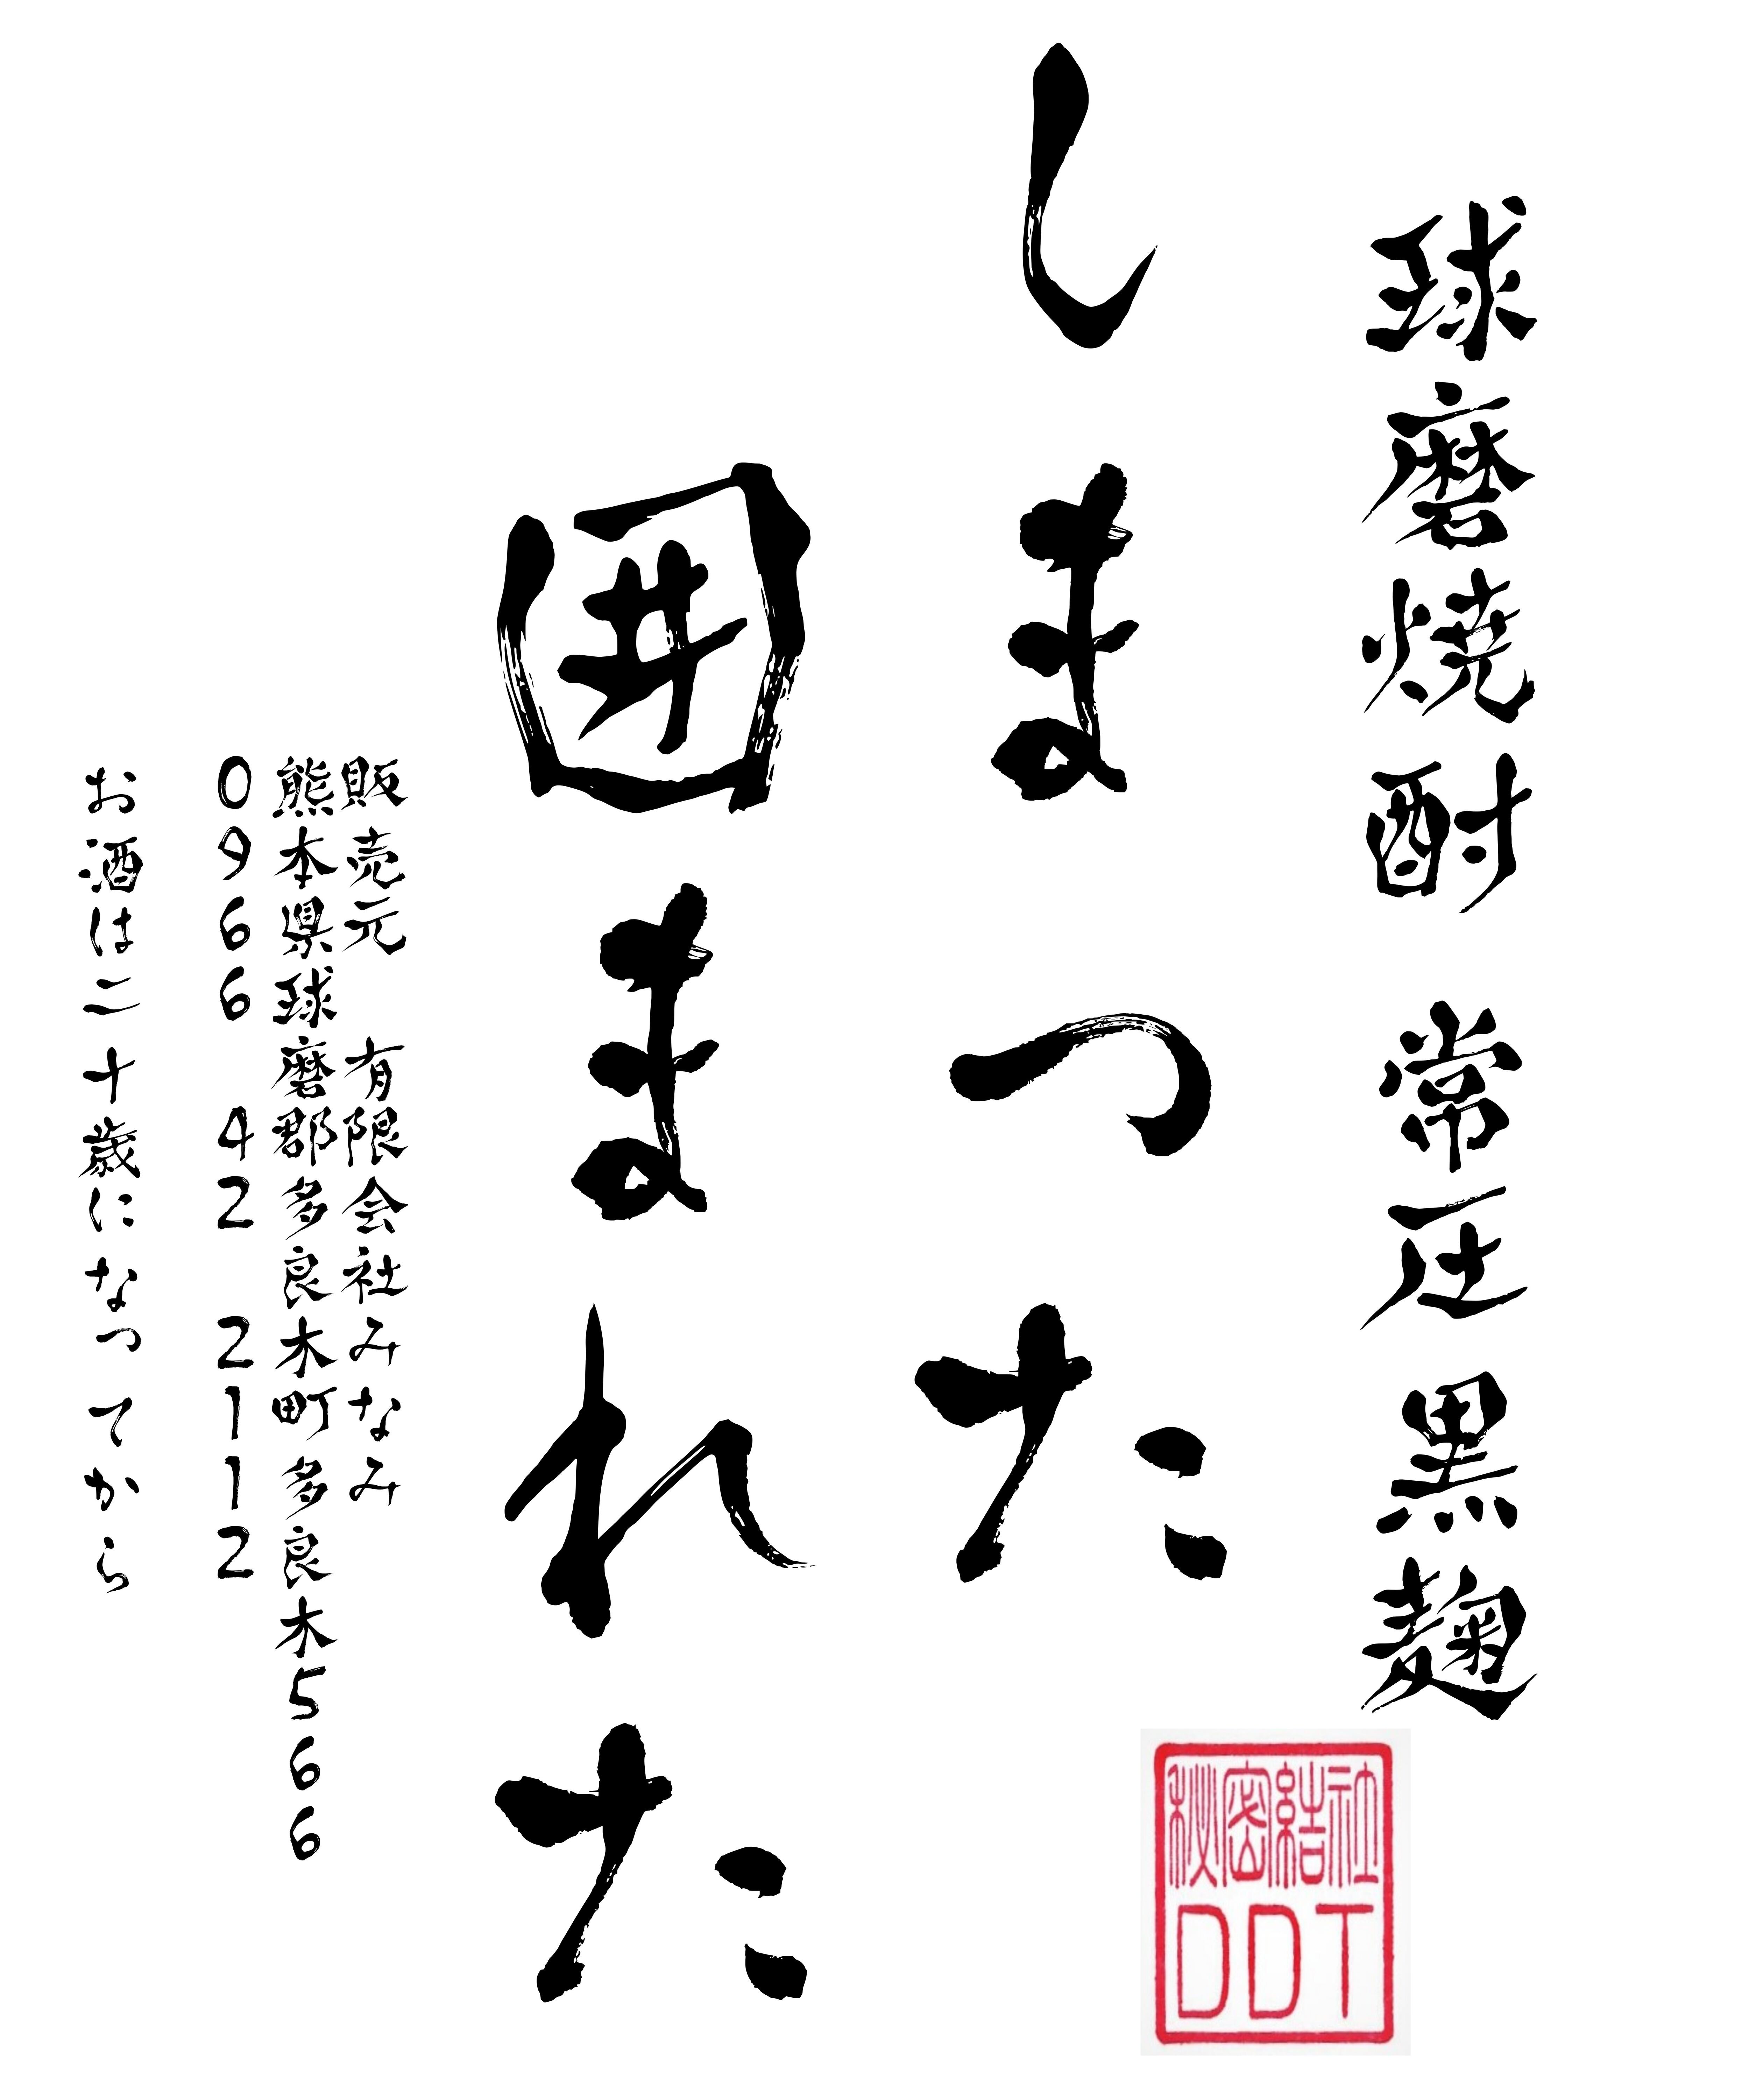 球磨焼酎 常圧 黒麹
しまった
囲まれた
販売元 有限会社みなみ
熊本県球磨郡多良木町多良木566
0966 42 2112
お酒は二十歳になってから
秘密結社
DDT